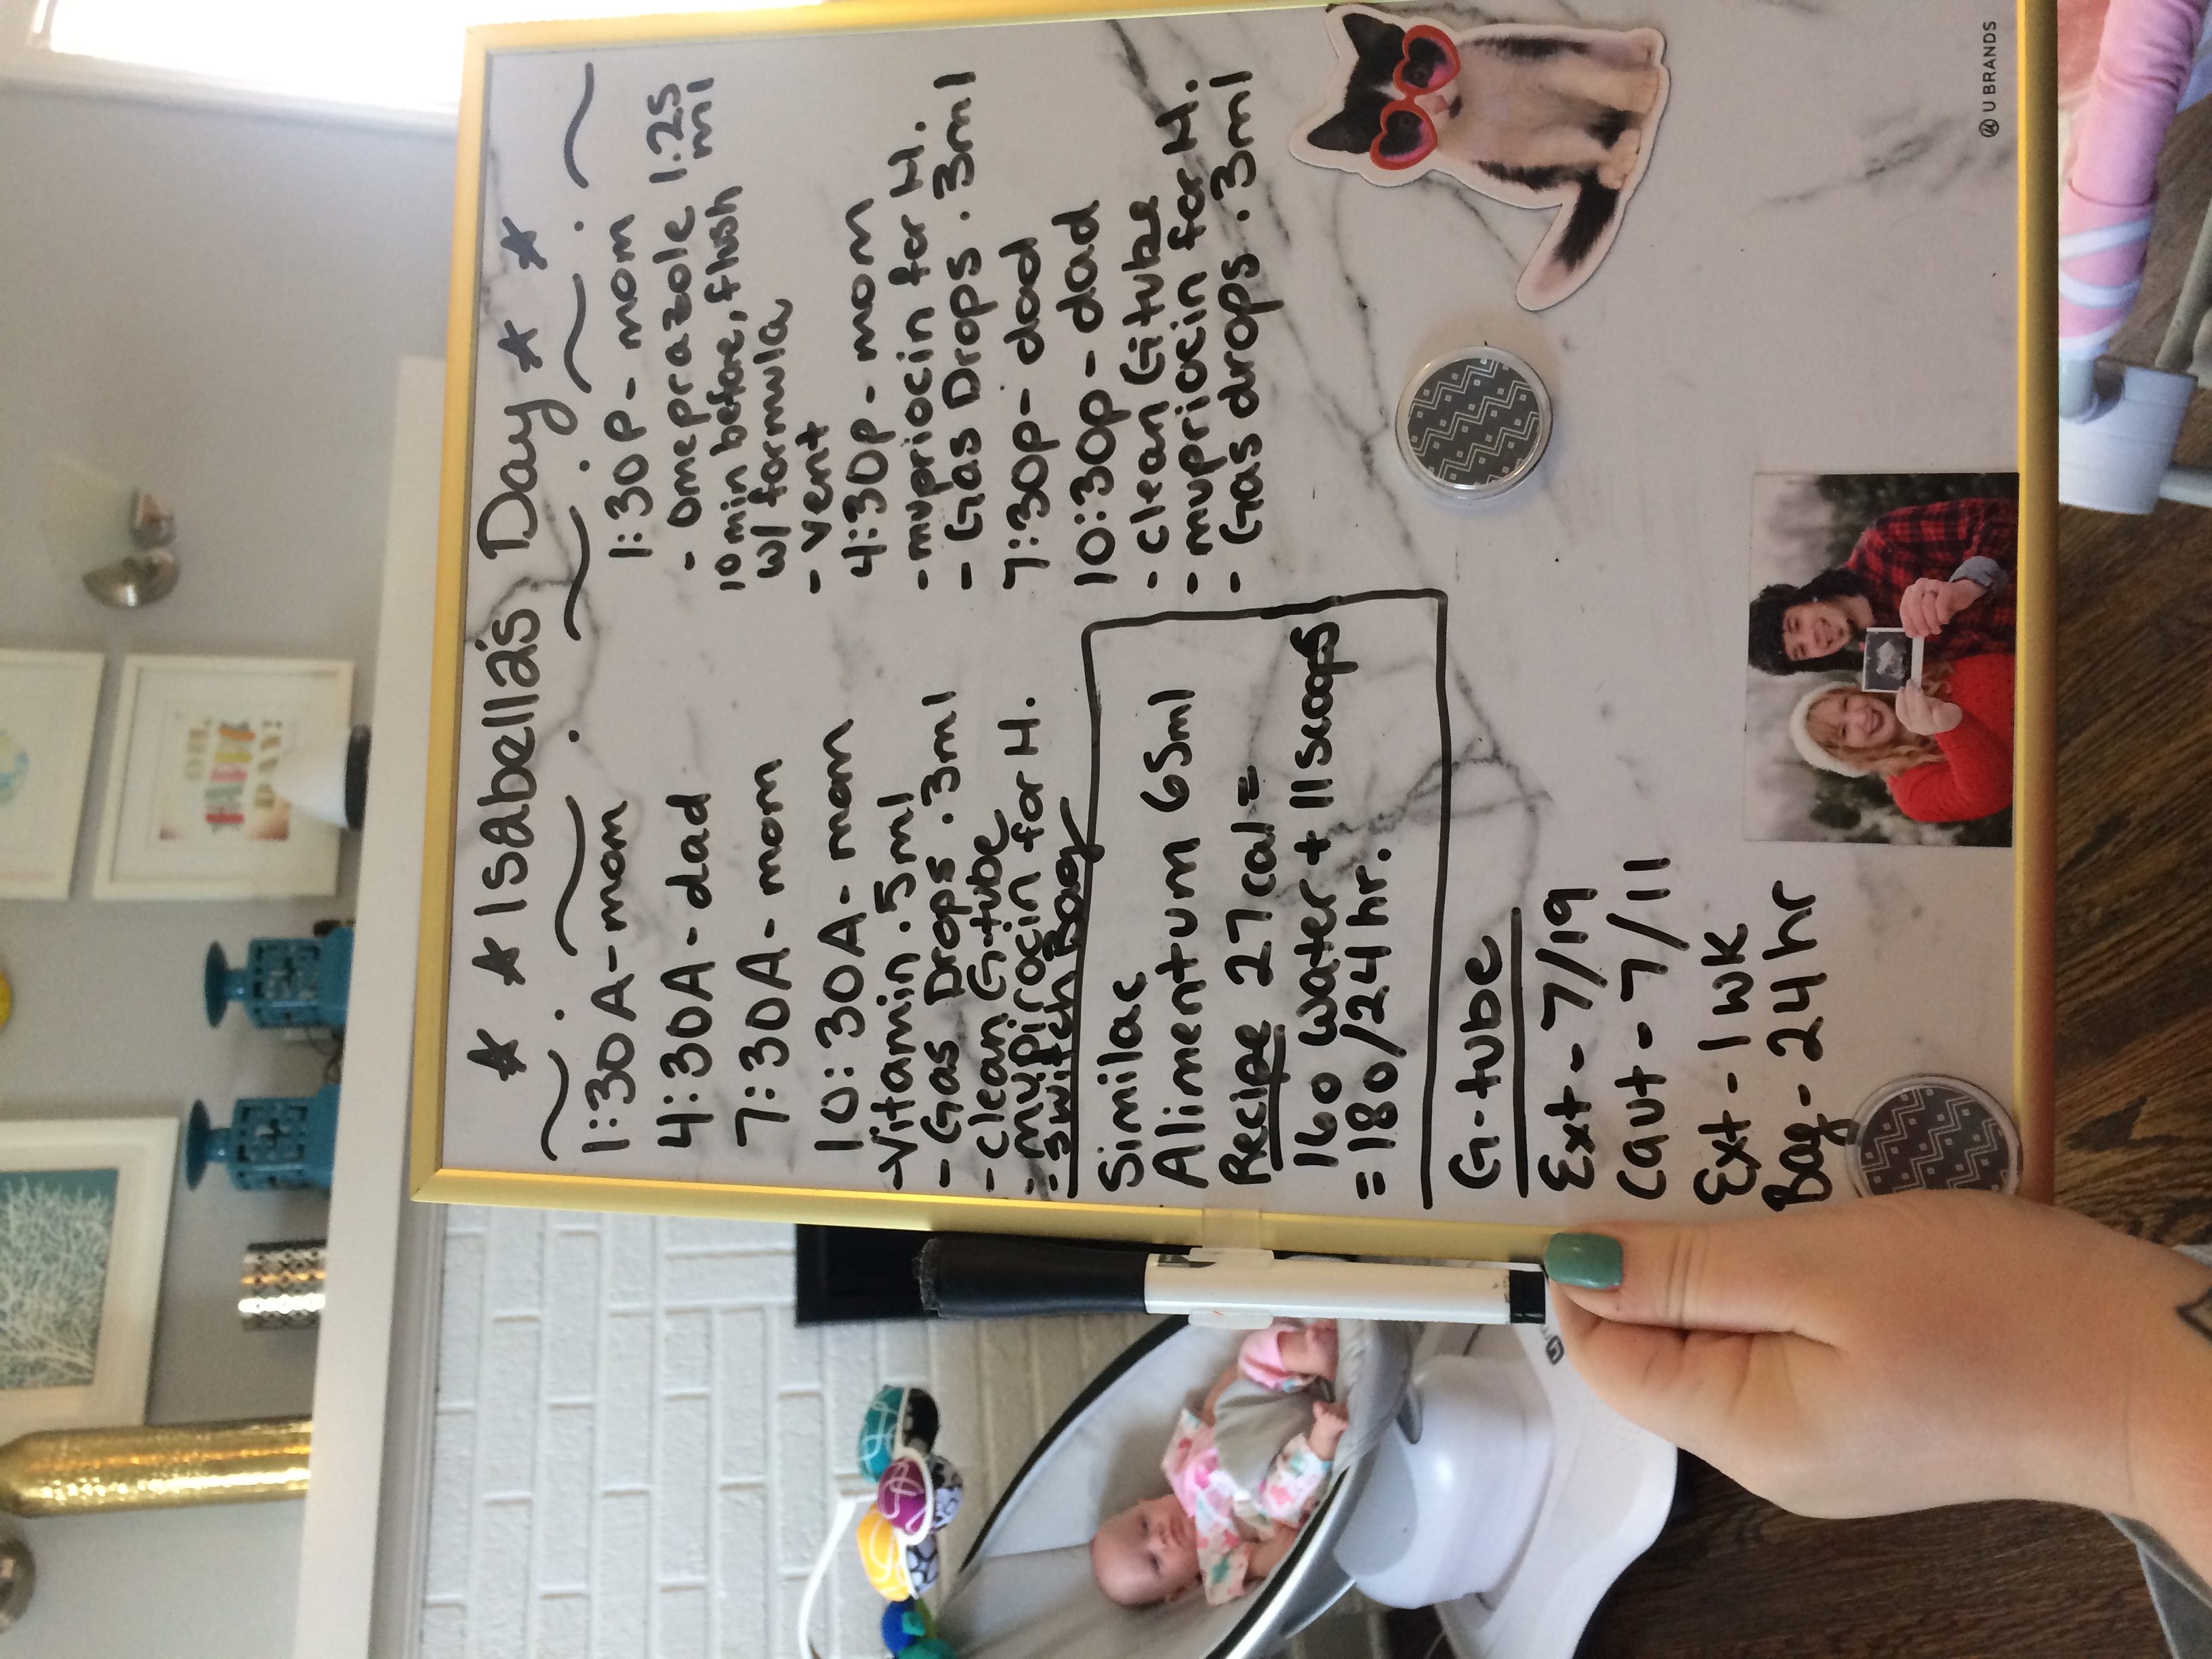 OH,
HAPPY
DAY!
Isabella's Day
1:30A-mom
4:30A-dad
7:30A-mom
10:30A-mom
-Vitamin .5ml
- Gas Drops .3ml
-clean G-tube
- mupirocin for H.
- switch Bag
Similac
Alimentum 65ml
Recipe 27cal=
160 water + 11 scoops
= 180/24 hr.
G-tube
Ext - 7/19
Caut - 7/11
Ext - 1 wk
Bag - 24 hr
1:30P- mom
- Omeprazole 1.25
ml
10 min before, flush
w/ formula
- vent
4:30p- mom
- mupriocin for H.
- Gas Drops .3ml
7:30p- dad
10:30p- dad
- clean G-tube
- mupriocin for H.
- Gas drops .3ml
U BRANDS